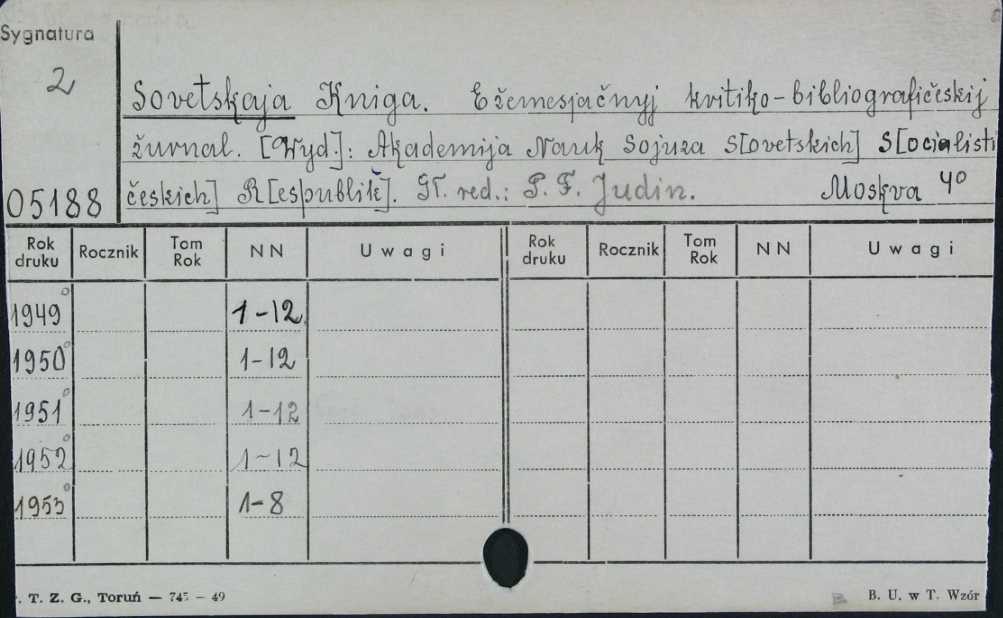 Sygnatura
2
05188
Sovetskaja Kniga. Ežemesjačnyj kritiko-bibliografičeskij
žurnal. [Wyd.]: Akademija Nauk Sojuza S[ovetskich] S[ocialisti
českich] R[espublik]. Gł. red.: P. F. Judin. Moskva 4°
Rok druku Rocznik Tom Rok NN Uwagi Rok druku Rocznik Tom Rok NN Uwagi
1949° 1-12
1950° 1-12
1951° 1-12
1952° 1-12
1953° 1-8
. T. Z. G., Toruń — 745 – 49 B. U. w T. Wzór